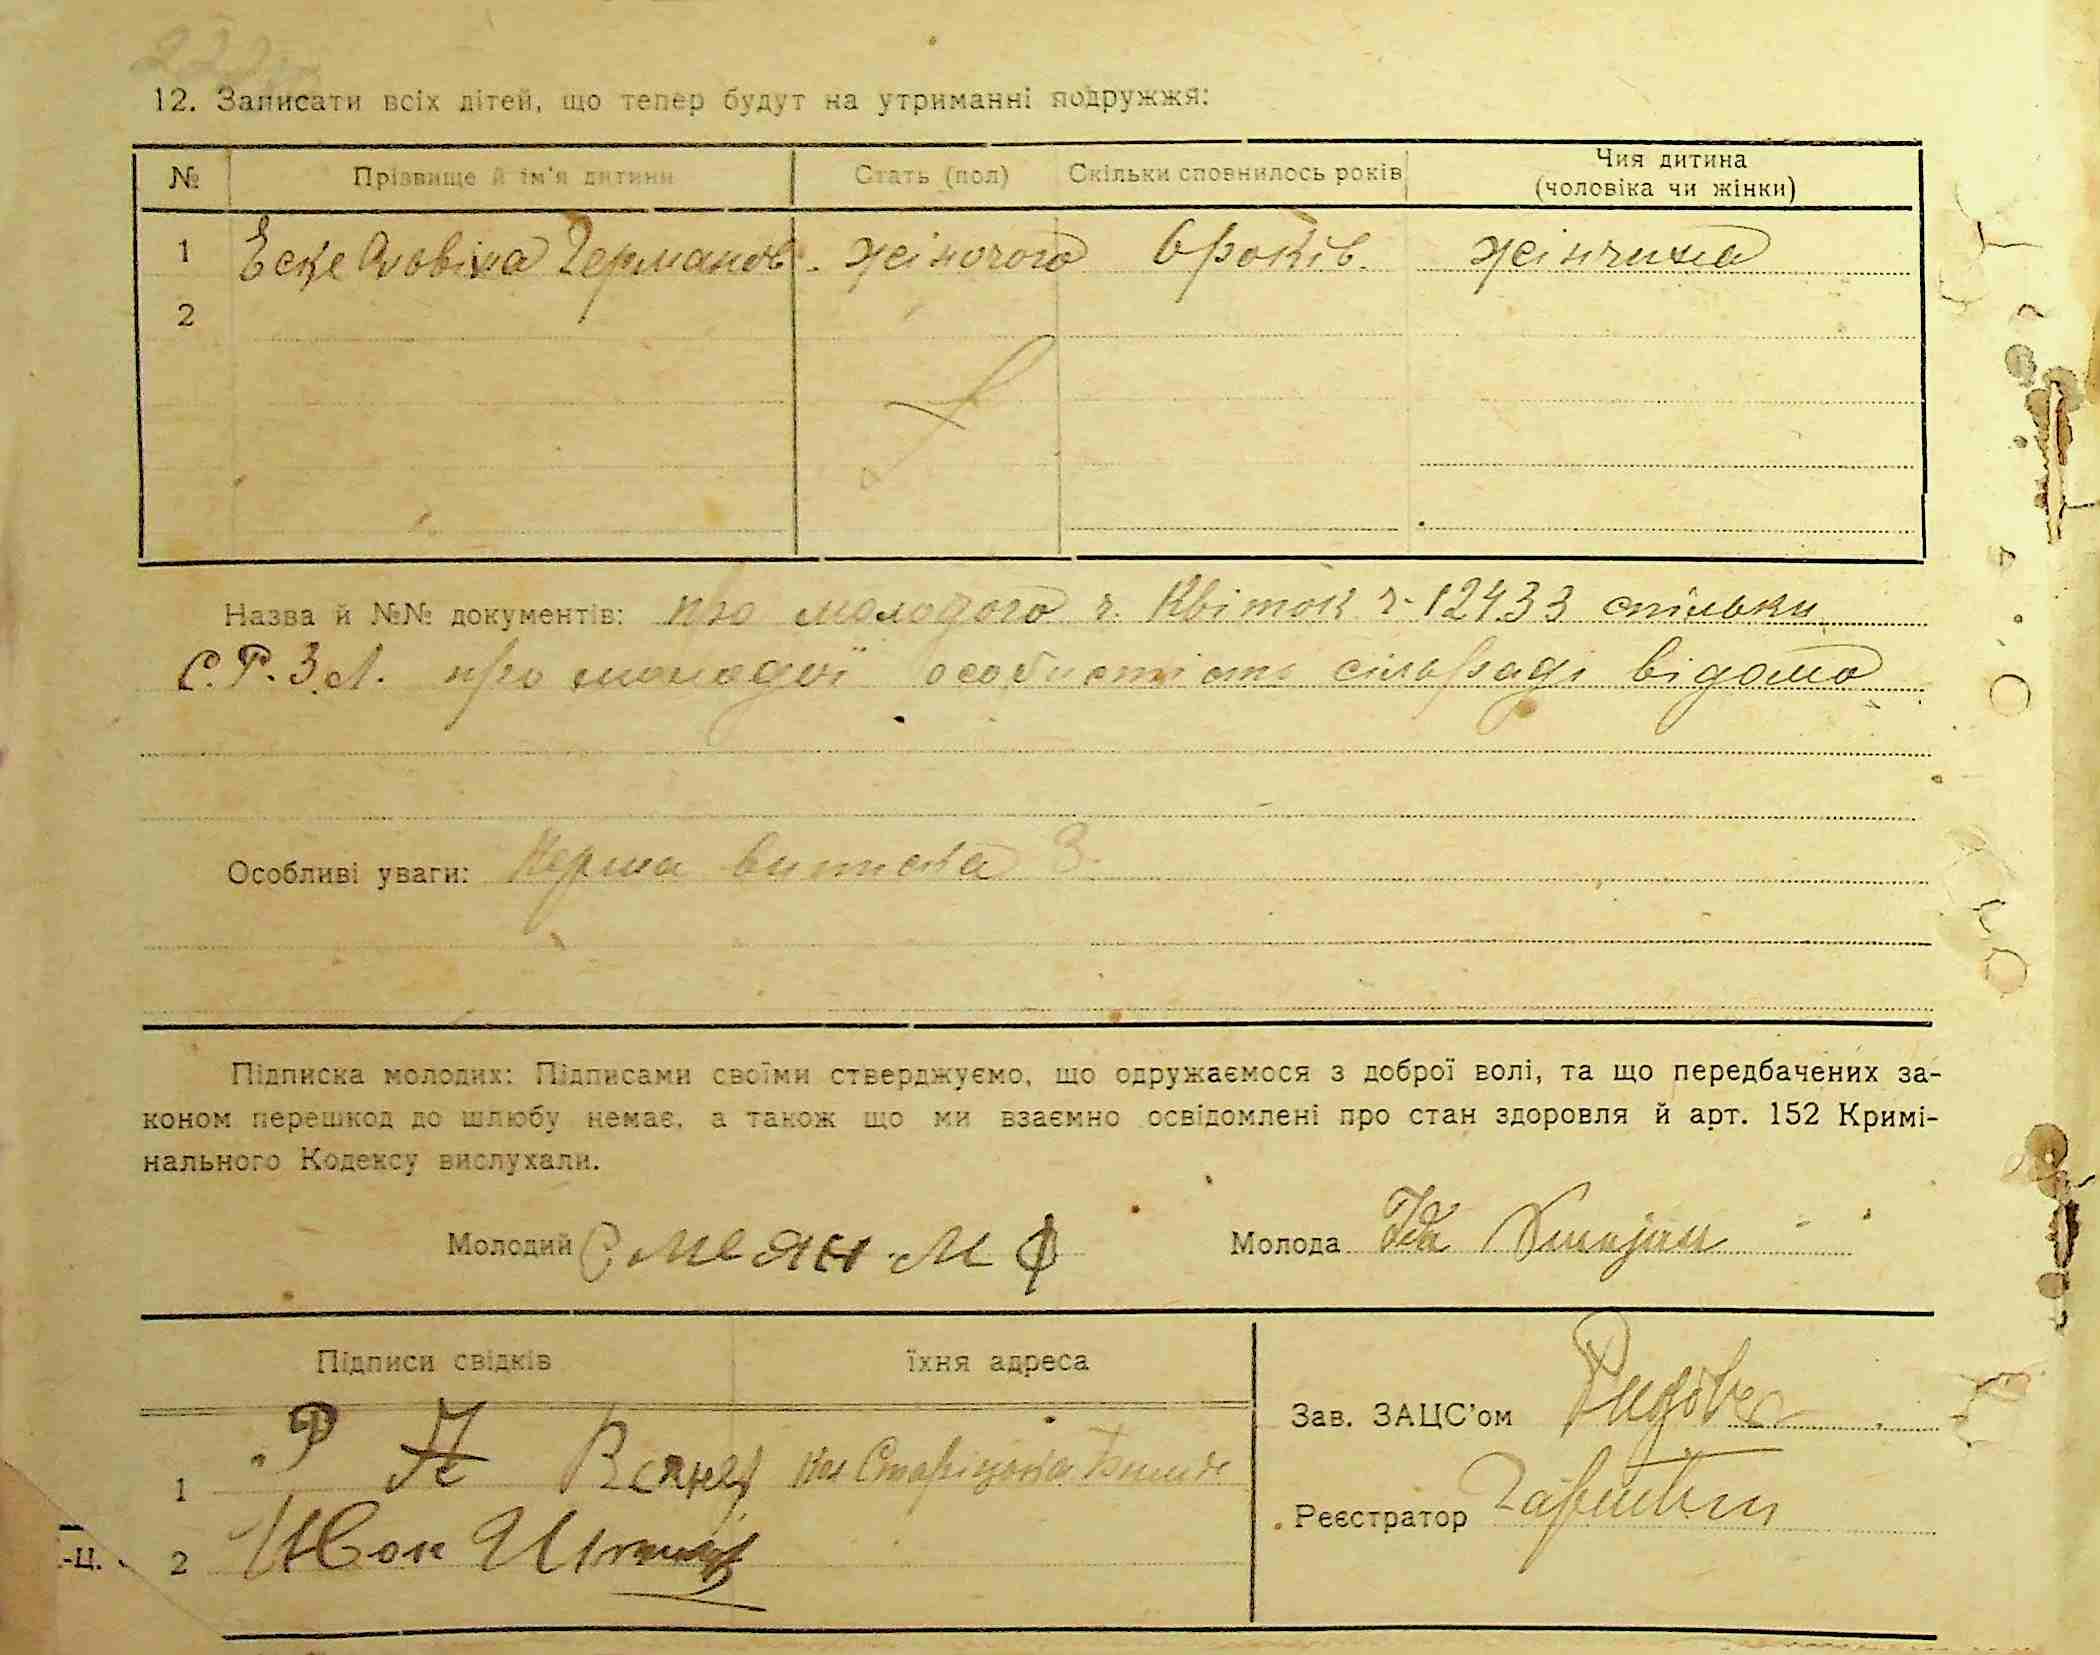 12. Записати всіх дітей, що тепер будут на утриманні подружжя:
№ Прізвище й ім'я дитини Стать (пол) Скільки сповнилось років Чия дитина (чоловіка чи жінки)
1 Еске Германов. жіночого 6 років. жінчина
2
Назва й №№ документів: про молодого г. Квіток г. 12433 спілки
С.Р.З.Л. про молодої особистість сільраді відомо
Особливі уваги: Перша виписка
Підписка молодих: Підписами своїми стверджуємо, що одружаємося з доброї волі, та що передбачених за-
коном перешкод до шлюбу немає, а також що ми взаємно освідомлені про стан здоровля й арт. 152 Кримі-
нального Кодексу вислухали.
Молодий Смеян. М Ф Молода
Підписи свідків їхня адреса
Зав. ЗАЦС'ом
1
Реєстратор
-Ц. 2